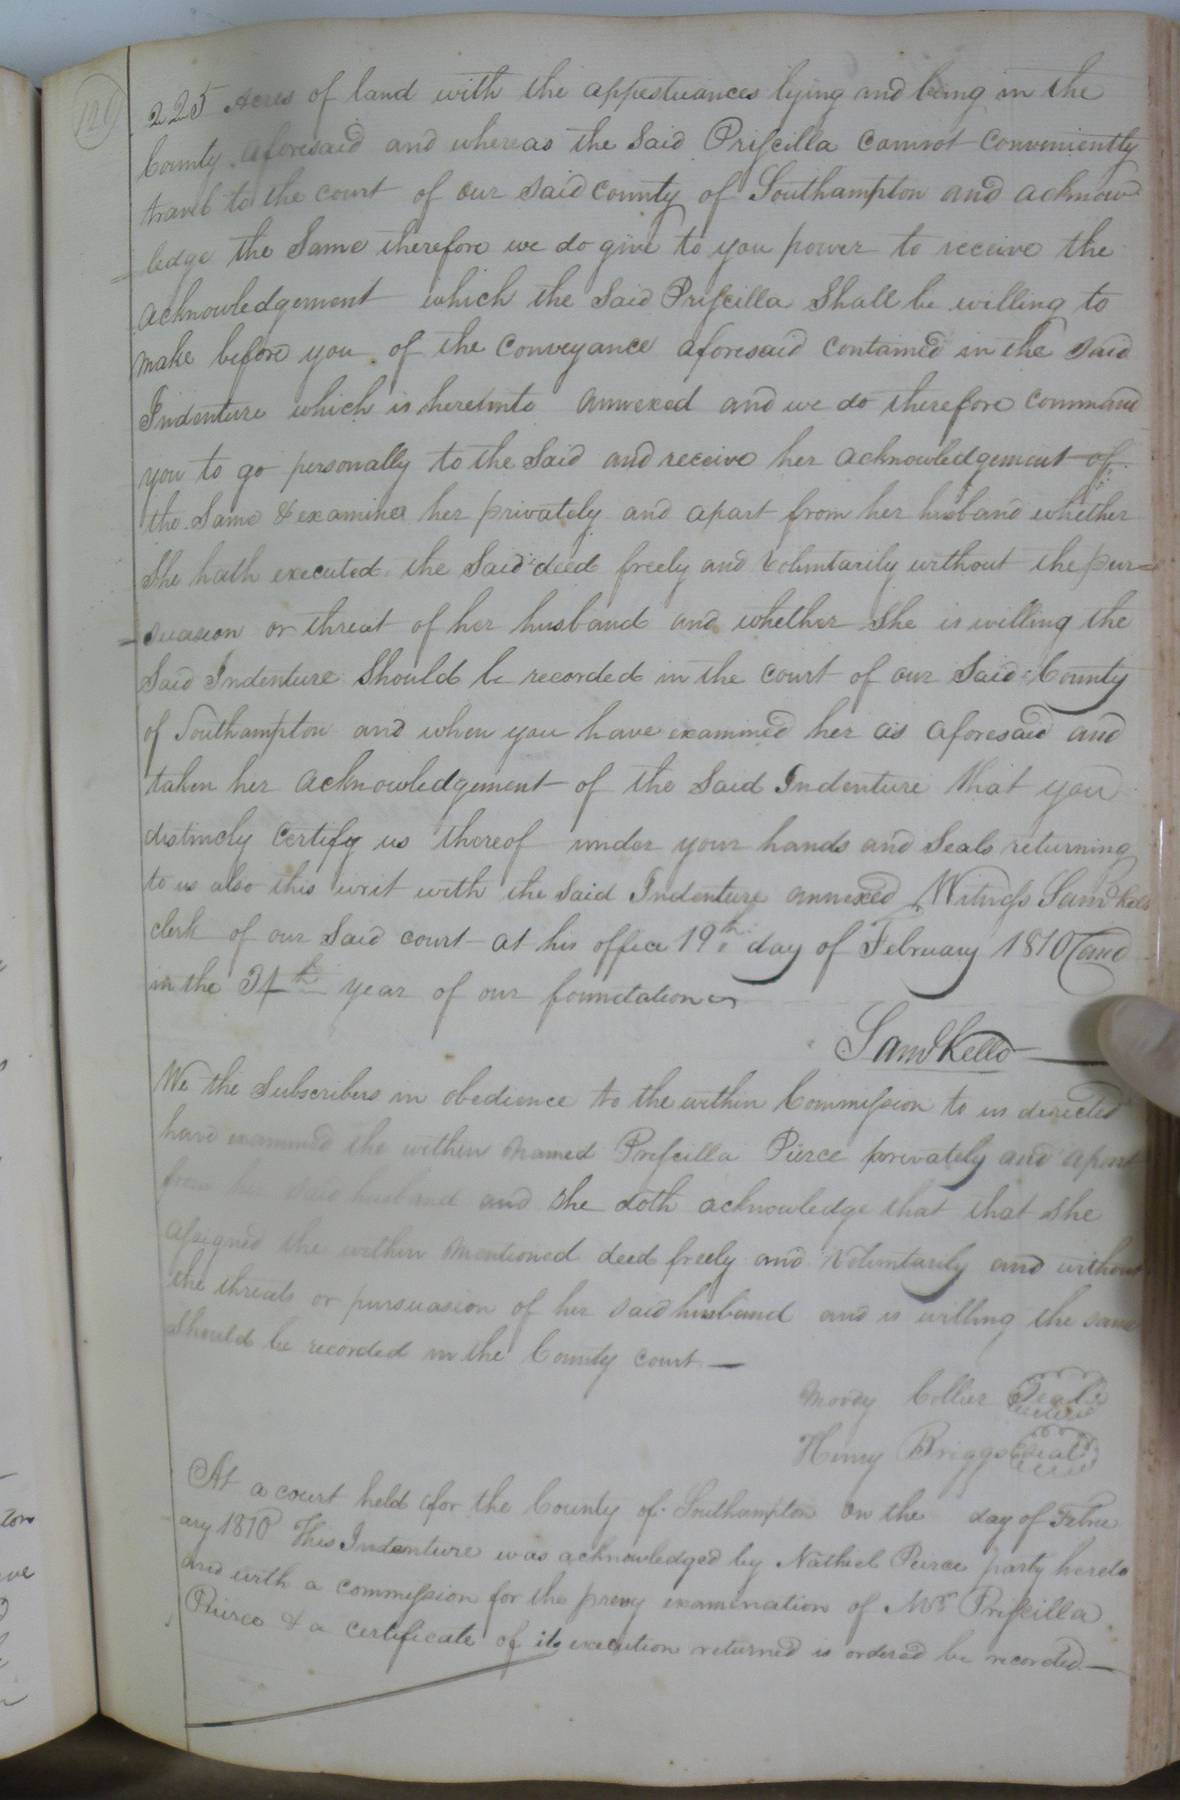 120
225 Acres of land with the appestuances lying and being in the
County aforesaid and whereas the said Priscilla cannot conveniently
travel to the court of our said county of Southampton and acknow
ledge the Same therefore we do give to you power to receive the
acknowledgement which the Said Priscilla Shall be willing to
make before you of the conveyance aforesaid contained in the said
Indenture which is hereunto annexed and we do therefore command
you to go personally to the Said and receive her acknowledgement of
the Same & examine her privately and apart from her husband whether
She hath executed the Said deed freely and voluntarily without the pur=
suasion or threat of her husband and whether She is willing the
Said Indenture Should be recorded in the court of our Said County
of Southampton and when you have examined her as aforesaid and
taken her acknowledgement of the Said Indenture that you
distincly certify us thereof under your hands and Seals returning
to us also this writ with the Said Indenture annexed Witness Saml Kello
clerk of our Said court at his office 19th day of February 1810 and
in the 34th year of our foundation
Saml Kello
We the Subscribers in obedience to the within Commission to us directed
have examined the within named Priscilla Pierce privately and apart
from her said husband and she doth acknowledge that that she
assigned the within mentioned deed freely and voluntarily and without
the threats or pursuasion of her said husband and is willing the same
Should be recorded in the County court
Moody Collier Seal
Henry Briggs Seal
At a court held for the County of Southampton on the day of Febru
ary 1810 This Indenture was acknowledged by Nathiel Peirce party hereto
and with a commission for the prevy examination of Mrs Priscilla
Peirce & a certificate of its execution returned is ordered be recorded